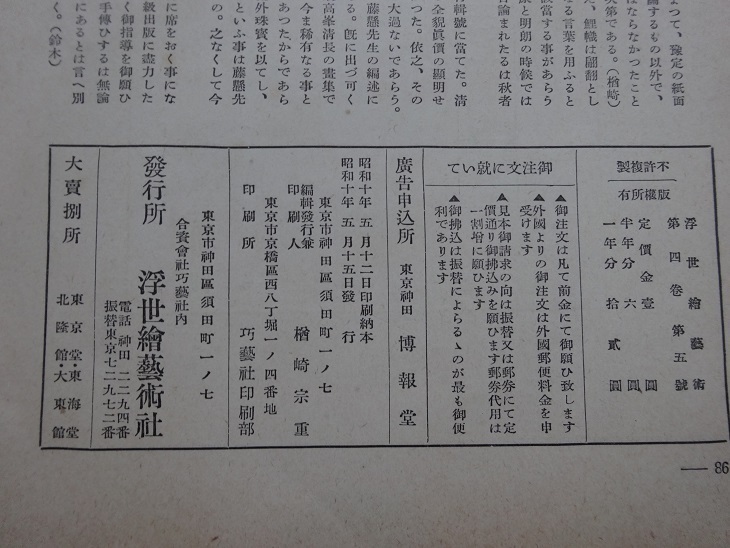 よつて、豫定の紙面
關するもの以外で、
ばならなかつたこと
次第である。(楢崎)
た、鯉幟は翩翻とし
なる言葉を用ふると
該當する事があらう
康と明朗の時候では
言論まれたるは秋者
輯號に當てた。清
全貌眞價の顯明せ
つた。依之、その
大過ないであらう。
藤懸先生の編述に
る。旣に出づ可く
高峯淸長の畫集で
今ま稀有なる事と
あつたからであら
外珠寶を以てし、
といふ事は藤懸先
の。之なくして今
に席をおく事にな
級出版に盡力した
く御指導を御願ひ
手傳ひするは無論
にあるとは言へ別
く。(鈴木)
不許複製
版權所有
浮世繪藝術
第四卷第五號
定價金壹圓
半年分六圓
一年分拾貳圓
御注文に就いて
▲御注文は凡て前金にて御願ひ致します
▲外國よりの御注文は外國郵便料金を申
受けます
▲見本御請求の向は振替又は郵券にて定
價通り御拂込みを願ひます郵券代用は
一割增に願ひます
▲御拂込は振替によらるゝのが最も御便
利であります
廣告申込所 東京神田 博報堂
昭和十年五月十二日印刷納本
昭和十年五月十五日發行
東京市神田區須田町一ノ七
編輯發行兼
印刷人 楢崎宗重
東京市京橋區西八丁堀一ノ四番地
印刷所 巧藝社印刷部
東京市神田區須田町一ノ七
合資會社巧藝社內
發行所 浮世繪藝術社
電話 神田二二九四番
振替東京七二九七二番
大賣捌所 東京堂・東海堂
北隆館・大東館
86